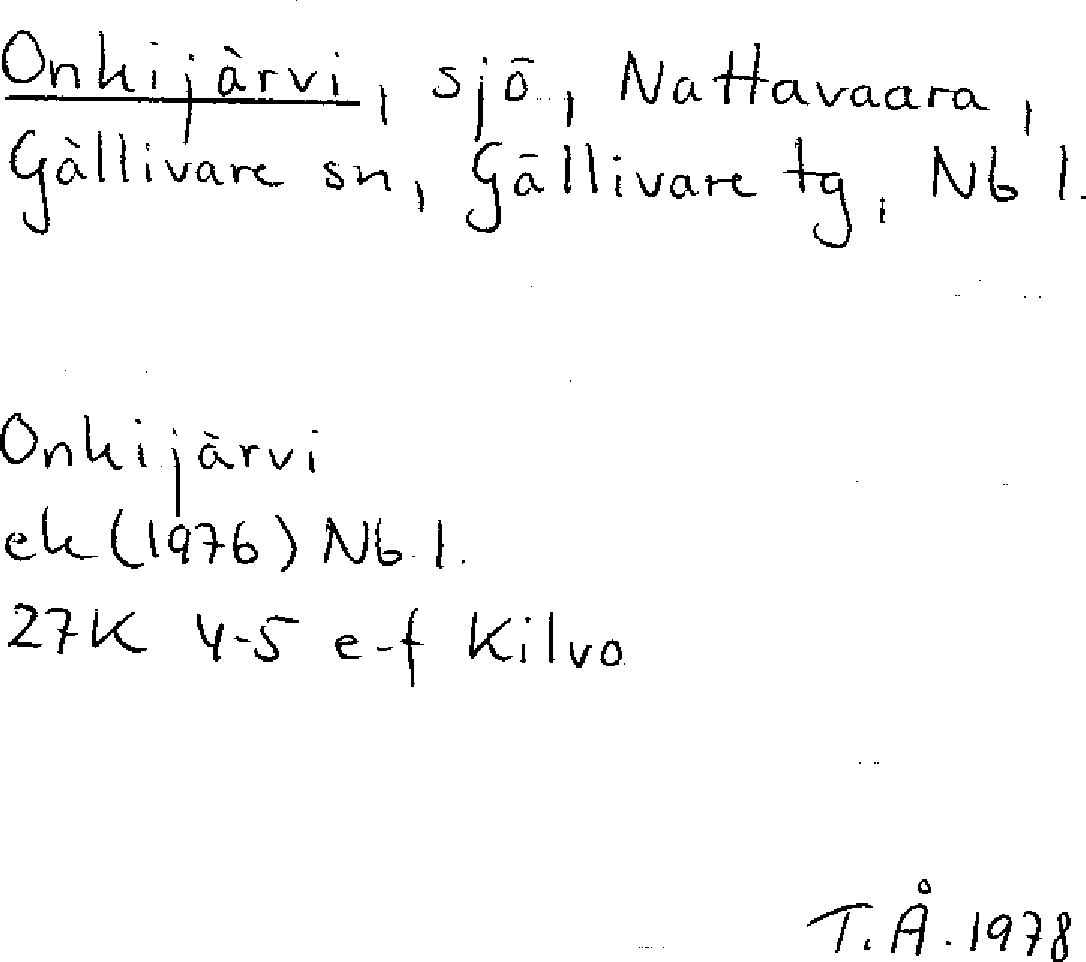 Onkijärvi, sjö, Nattavaara,
Gällivare sn, Gällivare tg, Nb l.
Onkijärvi
ek (1976) Nb l.
27K 4-5 e-f Kilvo
T.Å. 1978